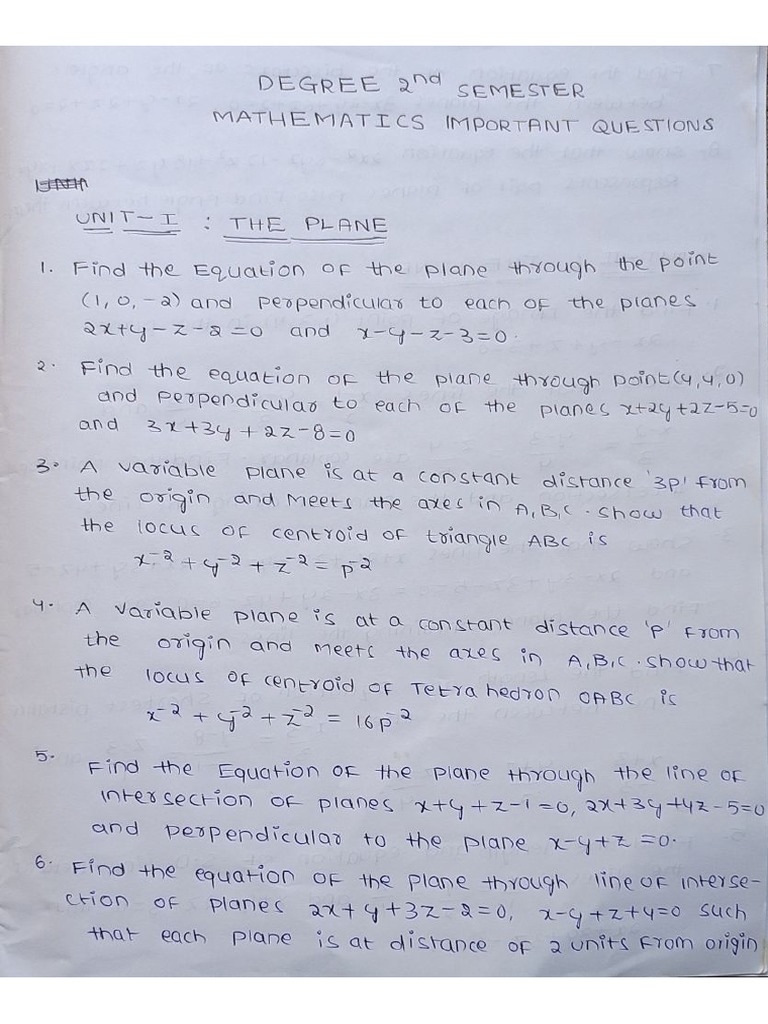 DEGREE 2nd SEMESTER
MATHEMATICS IMPORTANT QUESTIONS
UNIT-I : THE PLANE
1. Find the Equation of the plane through the point
(1, 0, -2) and perpendicular to each of the planes
2x+y-z-2=0 and x-y-z-3=0.
2. Find the equation of the plane through point(4,4,0)
and perpendicular to each of the planes x+2y+2z-5=0
and 3x+3y+2z-8=0
3. A variable plane is at a constant distance '3p' from
the origin and meets the axes in A,B,C. show that
the locus of centroid of triangle ABC is
x⁻² + y⁻² + z⁻² = p⁻²
4. A variable plane is at a constant distance 'p' from
the origin and meets the axes in A,B,C. show that
the locus of centroid of Tetra hedron OABC is
x⁻² + y⁻² + z⁻² = 16p⁻²
5. Find the Equation of the plane through the line of
intersection of planes x+y+z-1=0, 2x+3y+4z-5=0
and perpendicular to the plane x-y+z=0.
6. Find the equation of the plane through line of interse-
ction of planes 2x+y+3z-2=0, x-y+z+4=0 such
that each plane is at distance of 2 units from origin